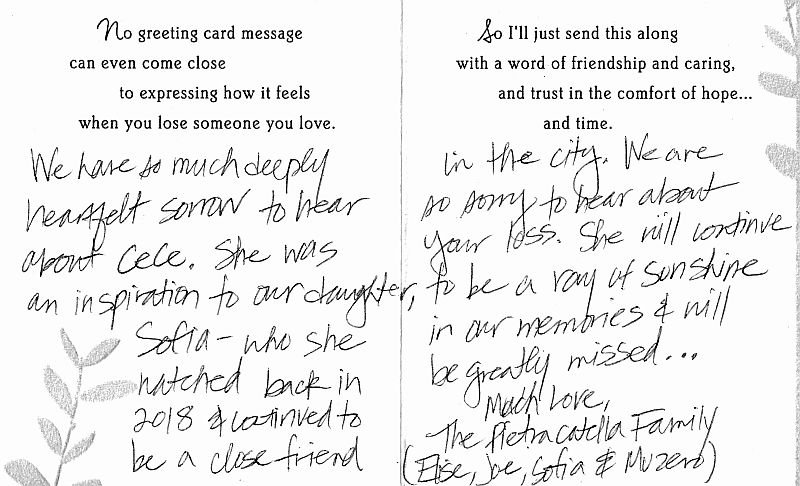 No greeting card message
can even come close
to expressing how it feels
when you lose someone you love.
We have so much deeply
heartfelt sorrow to hear
about Cece. She was
an inspiration to our daughter,
Sofia - who she
watched back in
2018 & continued to
be a close friend
So I'll just send this along
with a word of friendship and caring,
and trust in the comfort of hope...
and time.
in the city. We are
so sorry to hear about
your loss. She will continue
to be a ray of sunshine
in our memories & will
be greatly missed...
Much Love,
The Pietracatella Family
(Elise, Joe, Sofia & Muzero)